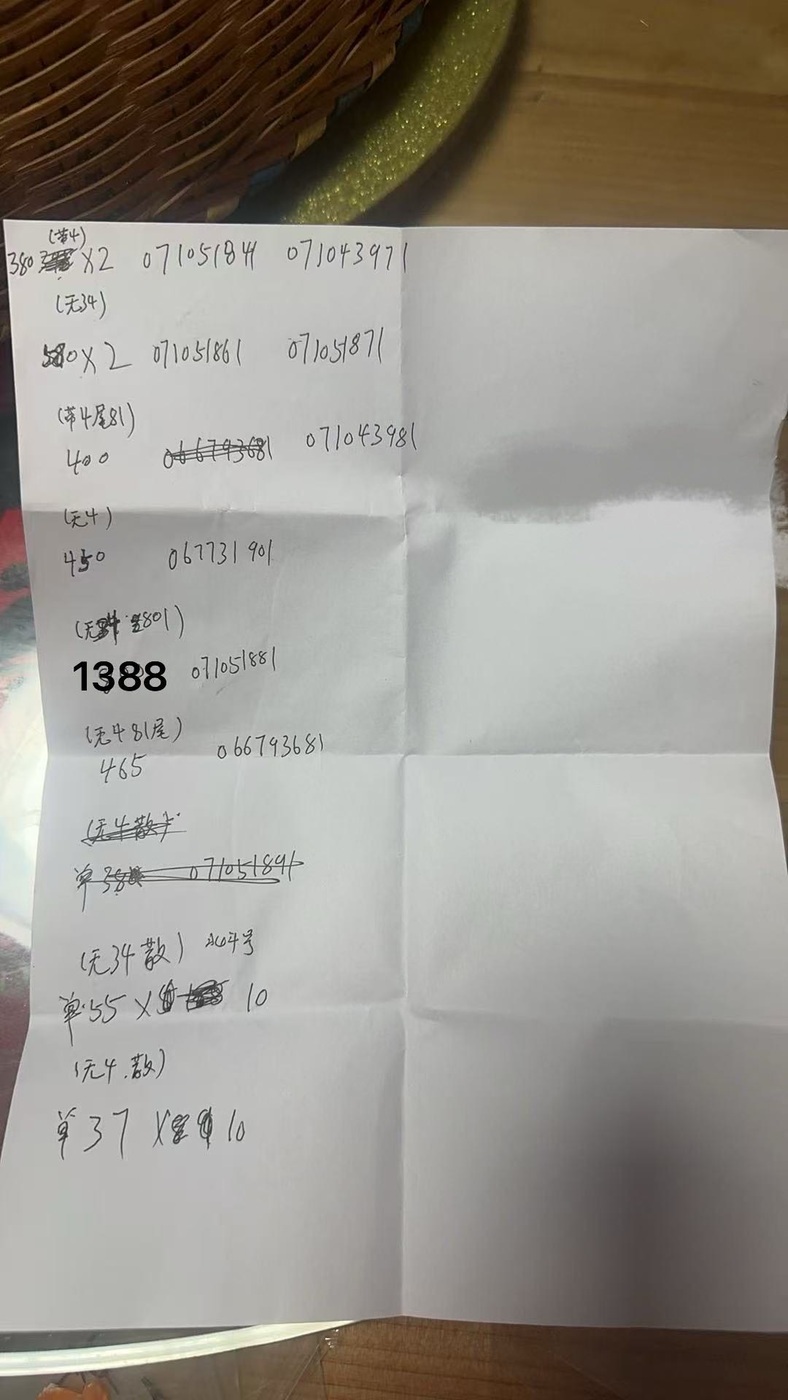 (带4)
380 X2 071051841 071043971
(无34)
580X2 071051861 071051871
(带4尾81)
400 066793681 071043981
(无4)
450 067731901
(无 801)
1388 071051881
(无481尾)
465 066793681
(无4散)
单38 071051891
(无34散)
单55 X 10
(无4散)
单37 X 10